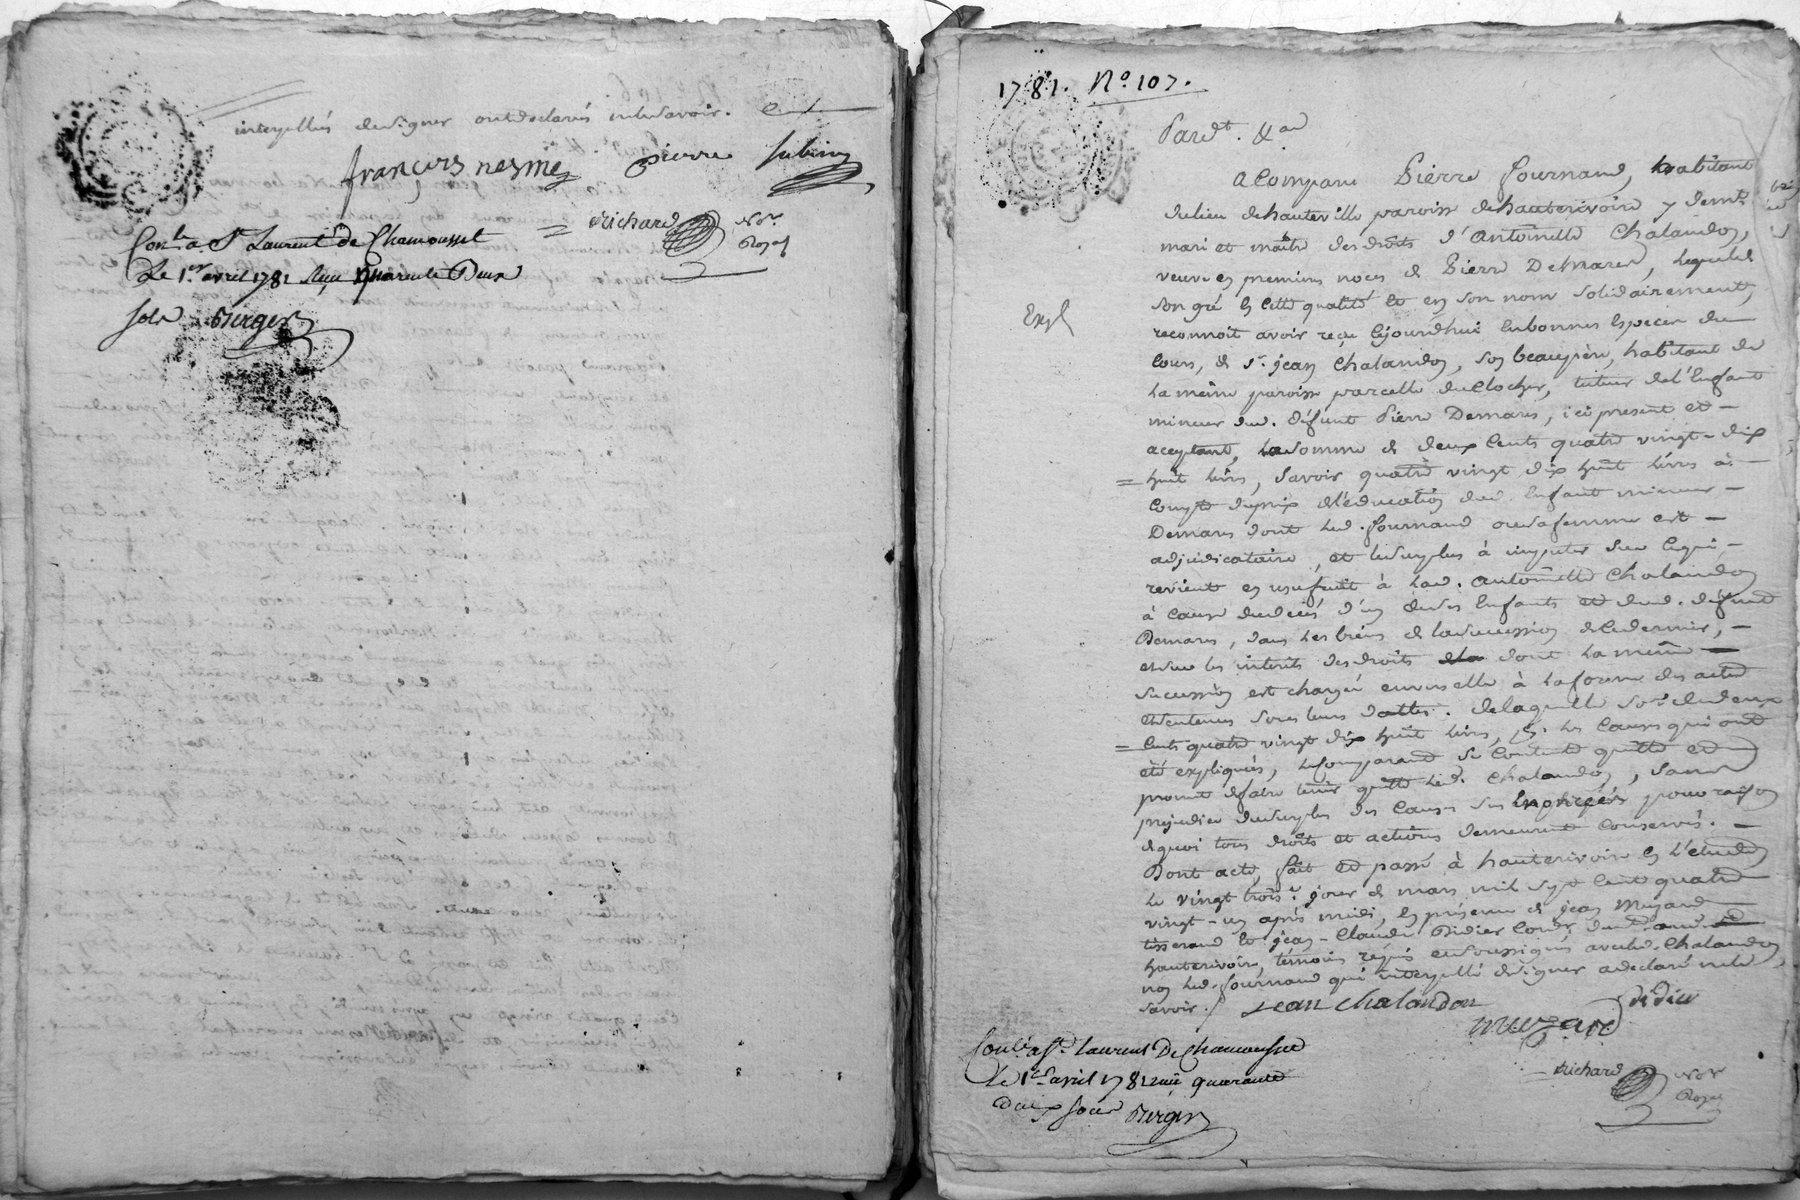 interpellés de signer ont declarés ne le savoir.
françois nesme pierre
Richard Nore Royal
Conlé a St Laurent de Chamousset
Le 1er avril 1781 Reçu Quarente Deux
sols Berger
1781. No. 107.
Pardt. &a
a Comparu Pierre fournand, habitant
du lieu de hauteville paroisse de hauterivoire y demt.
mari et maître des droits d'Antoinette Chalandon,
veuve en premieres noces de Pierre Demares, lequel de
son gré en cette qualité et en son nom solidairement,
Expé
reconnoit avoir reçu cejourdhui en bonnes especes du
cours, de sr. jean Chalandon, son beaupère, habitant de
la même paroisse parcelle du Clocher, tuteur de l'Enfant
mineur dud. défunt Pierre Demares, ici present et
acceptant, la somme de deux cents quatre vingt-dix
huit livres, savoir quatre vingt dix huit livres à
Compte du prix de l'éducation dud. Enfant mineur
Demares dont led. fournand ou sa femme est
adjudicataire, et le surplus à imputer sur ce qui
revient en usufruit à lad. antoinette Chalandon
à cause du décès d'un de ses Enfants et dud. défunt
Demares, dans les biens de la succession de ce dernier,
et sur les interets des droits dont la même
succession est chargée envers elle à la forme des actes
et sentences sous leurs dattes. de laquelle some de deux
Cents quatre vingt dix huit livres, les causes qui ont
été expliquées, le Comparant se Contente quitte et
promet de faire tenir quitte led. Chalandon, sans
prejudice du surplus des causes sus pour raison
de quoi tous droits et actions demeurent conservés.
Dont acte, fait et passé à hauterivoire en l'etude
le vingt trois.e jour de mars mil sept cent quatre
vingt-un après midi, en présence de jean Muzard
tisserand et jean-Claude Didier Cordr, demt. aud.
hauterivoire, témoins requis en soussignés avec led. Chalandon
non led. fournand qui interpellé de signer a declaré ne le
savoir. jean chalandon didier
muzard
Richard Nore Royal
Conlé a St. Laurent De Chamousset
Le 1er avril 1781 reçu quarante
deux sous Berger